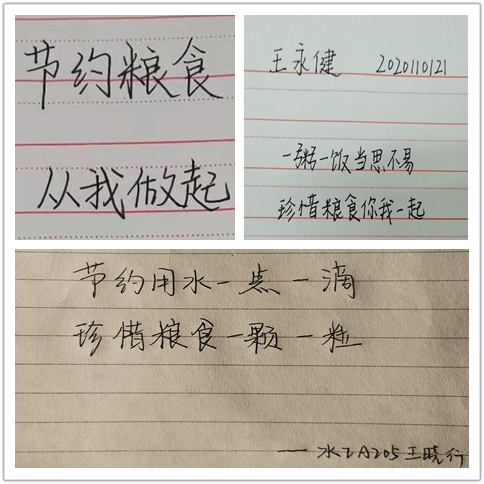 节约粮食
从我做起
王永健 2020110121
一粥一饭当思不易
珍惜粮食你我一起
节约用水一点一滴
珍惜粮食一颗一粒
——水工A205王晓行